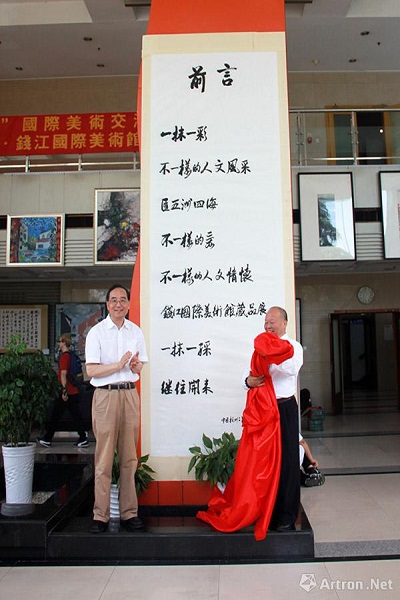 ” 國際美術交流
·錢江國際美術館
前言
一抹一彩
不一樣的人文風采
匯亞洲四海
不一樣的
不一樣的人文情懷
錢江國際美術館藏品展
一抹一踩
继往開来
Artron.Net